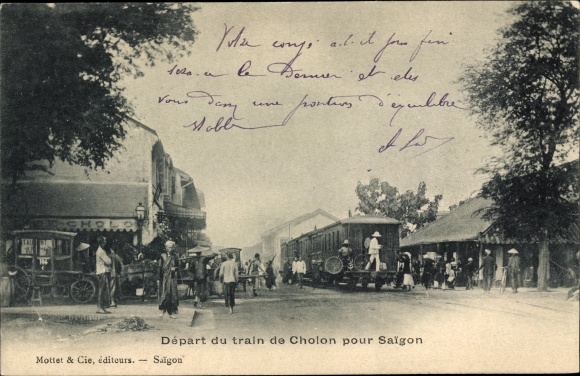 Votre congé a-t-il pris fin
sera-ce le Dernier et êtes
vous dans une position d'équilibre
stable
Départ du train de Cholon pour Saïgon
Mottet & Cie, éditeurs. — Saïgon